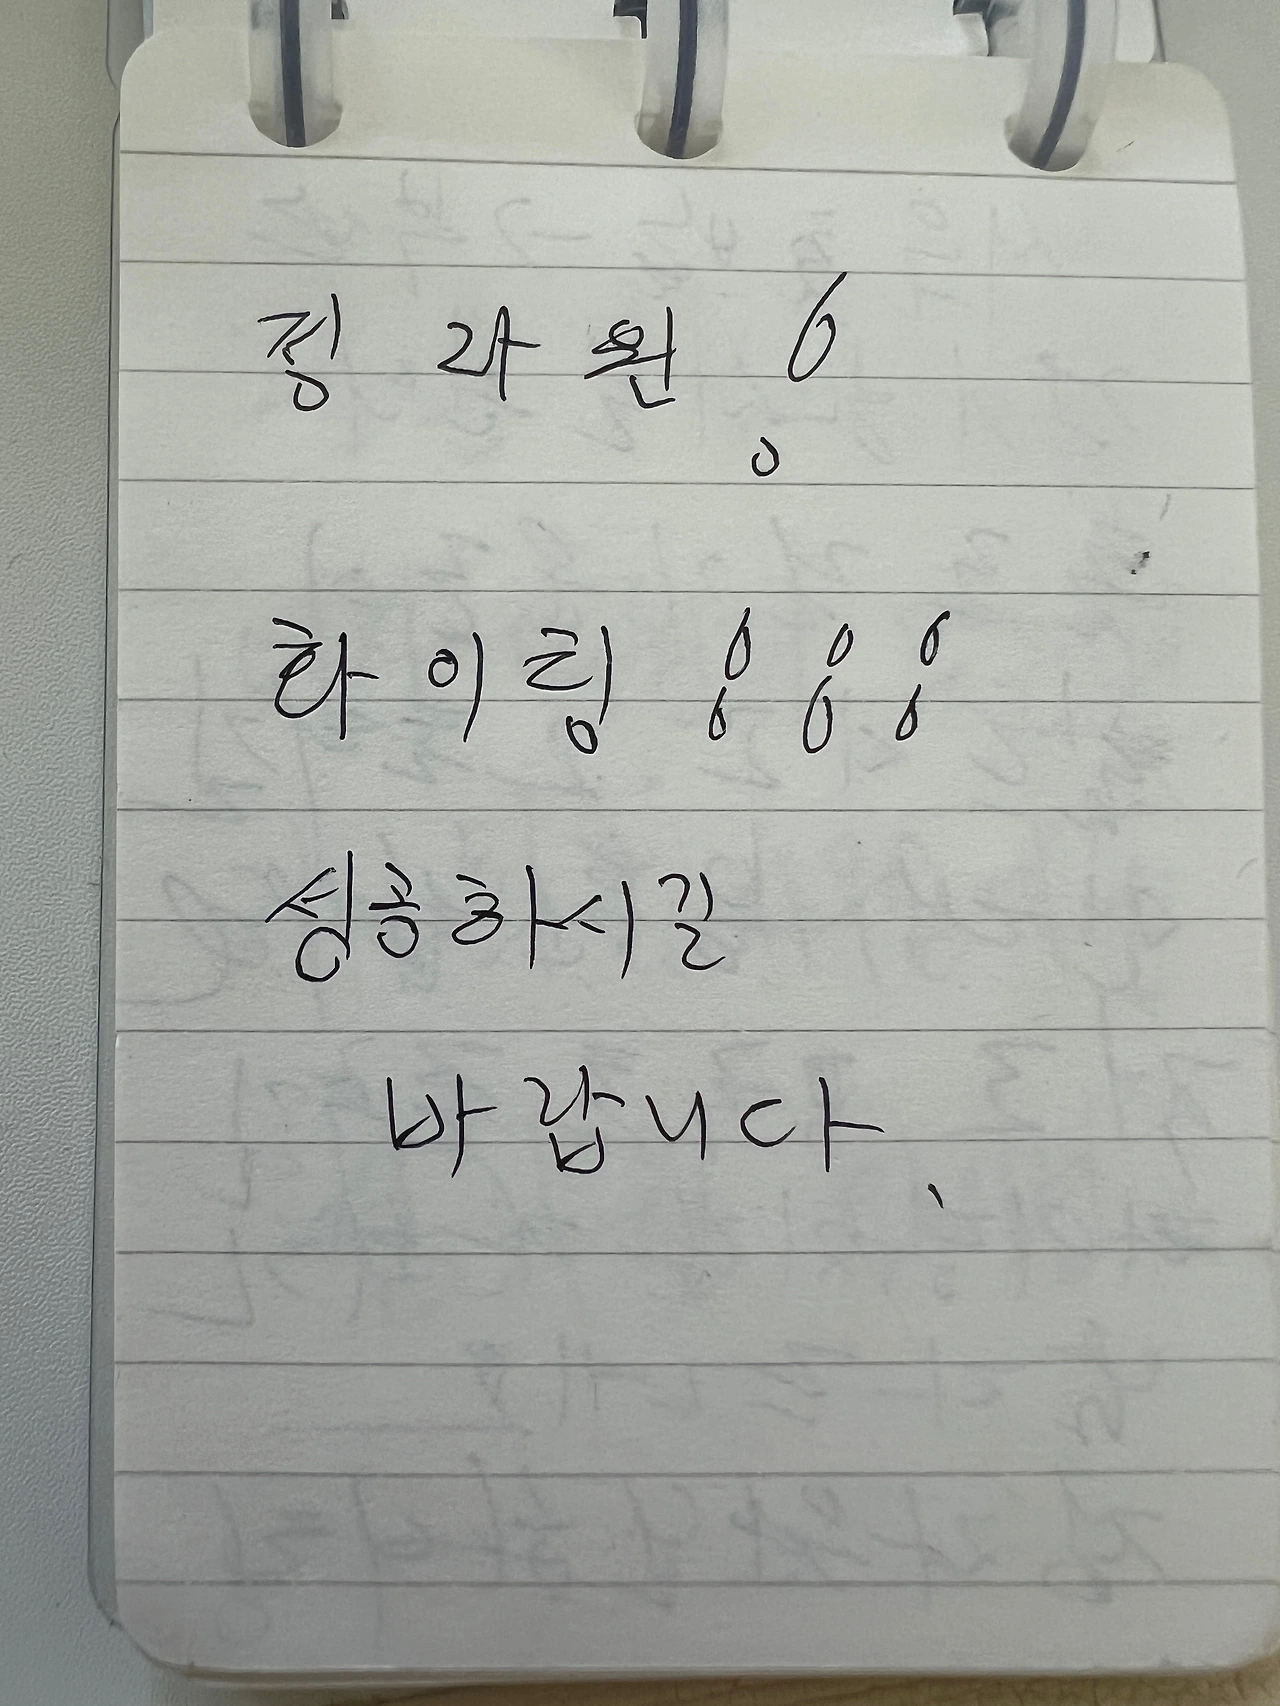 정라원!
화이링!!!
성공하시길
바랍니다.